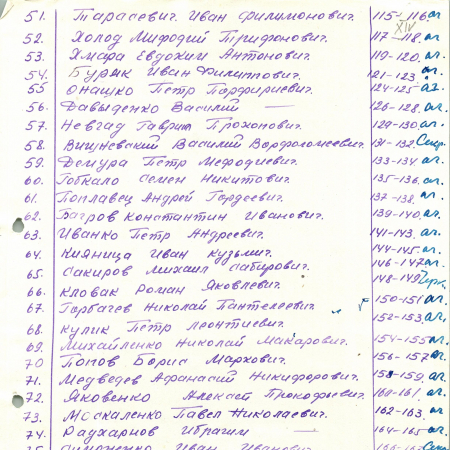 51. Тарасевич Иван Филимонович. 115-116 ал
XIV
52. Холод Мифодий Трифонович. 117-118. ал.
53. Хмара Евдоким Антонович. 119-120. ал.
54. Буряк Иван Филиппович. 121-123. ал.
55 Онашко Петр Порфириевич. 124-125 ал.
56. Давыденко Василий — 126-128. ал.
57. Невгад Гаврил Прохопович. 129-130. ал.
58. Вишневский Василий Ворфоломеевич. 131-132.
59. Демура Петр Мефодиевич. 133-134. ал.
60. Гобкало Семен Никитович. 135-136. ал.
61. Поплавец Андрей Гордеевич. 137-138. ал.
62. Багров Константин Иванович. 139-140. ал.
63. Иванко Петр Андреевич. 141-143. ал.
64. Кияница Иван Кузьмич. 144-145. ал.
65. Сакиров Михаил Сабирович. 146-147 ал.
66. Кловак Роман Яковлевич. 148-149
67. Горбачев Николай Пантелеевич. 150-151 ал.
68. Кулик Петр Леонтиевич. 152-153. ал.
69. Михайленко Николай Макарович. 154-155 ал.
70 Попов Борис Маркович. 156-157 ал.
71. Медведев Афанасий Никифорович. 158-159. ал.
72. Яковенко Алексей Прокофьевич. 160-161. ал.
73. Москаленко Павел Николаевич. 162-163. ал.
74. Радхарнов Ибрагим — 164-165 ал.
Иван Иванович